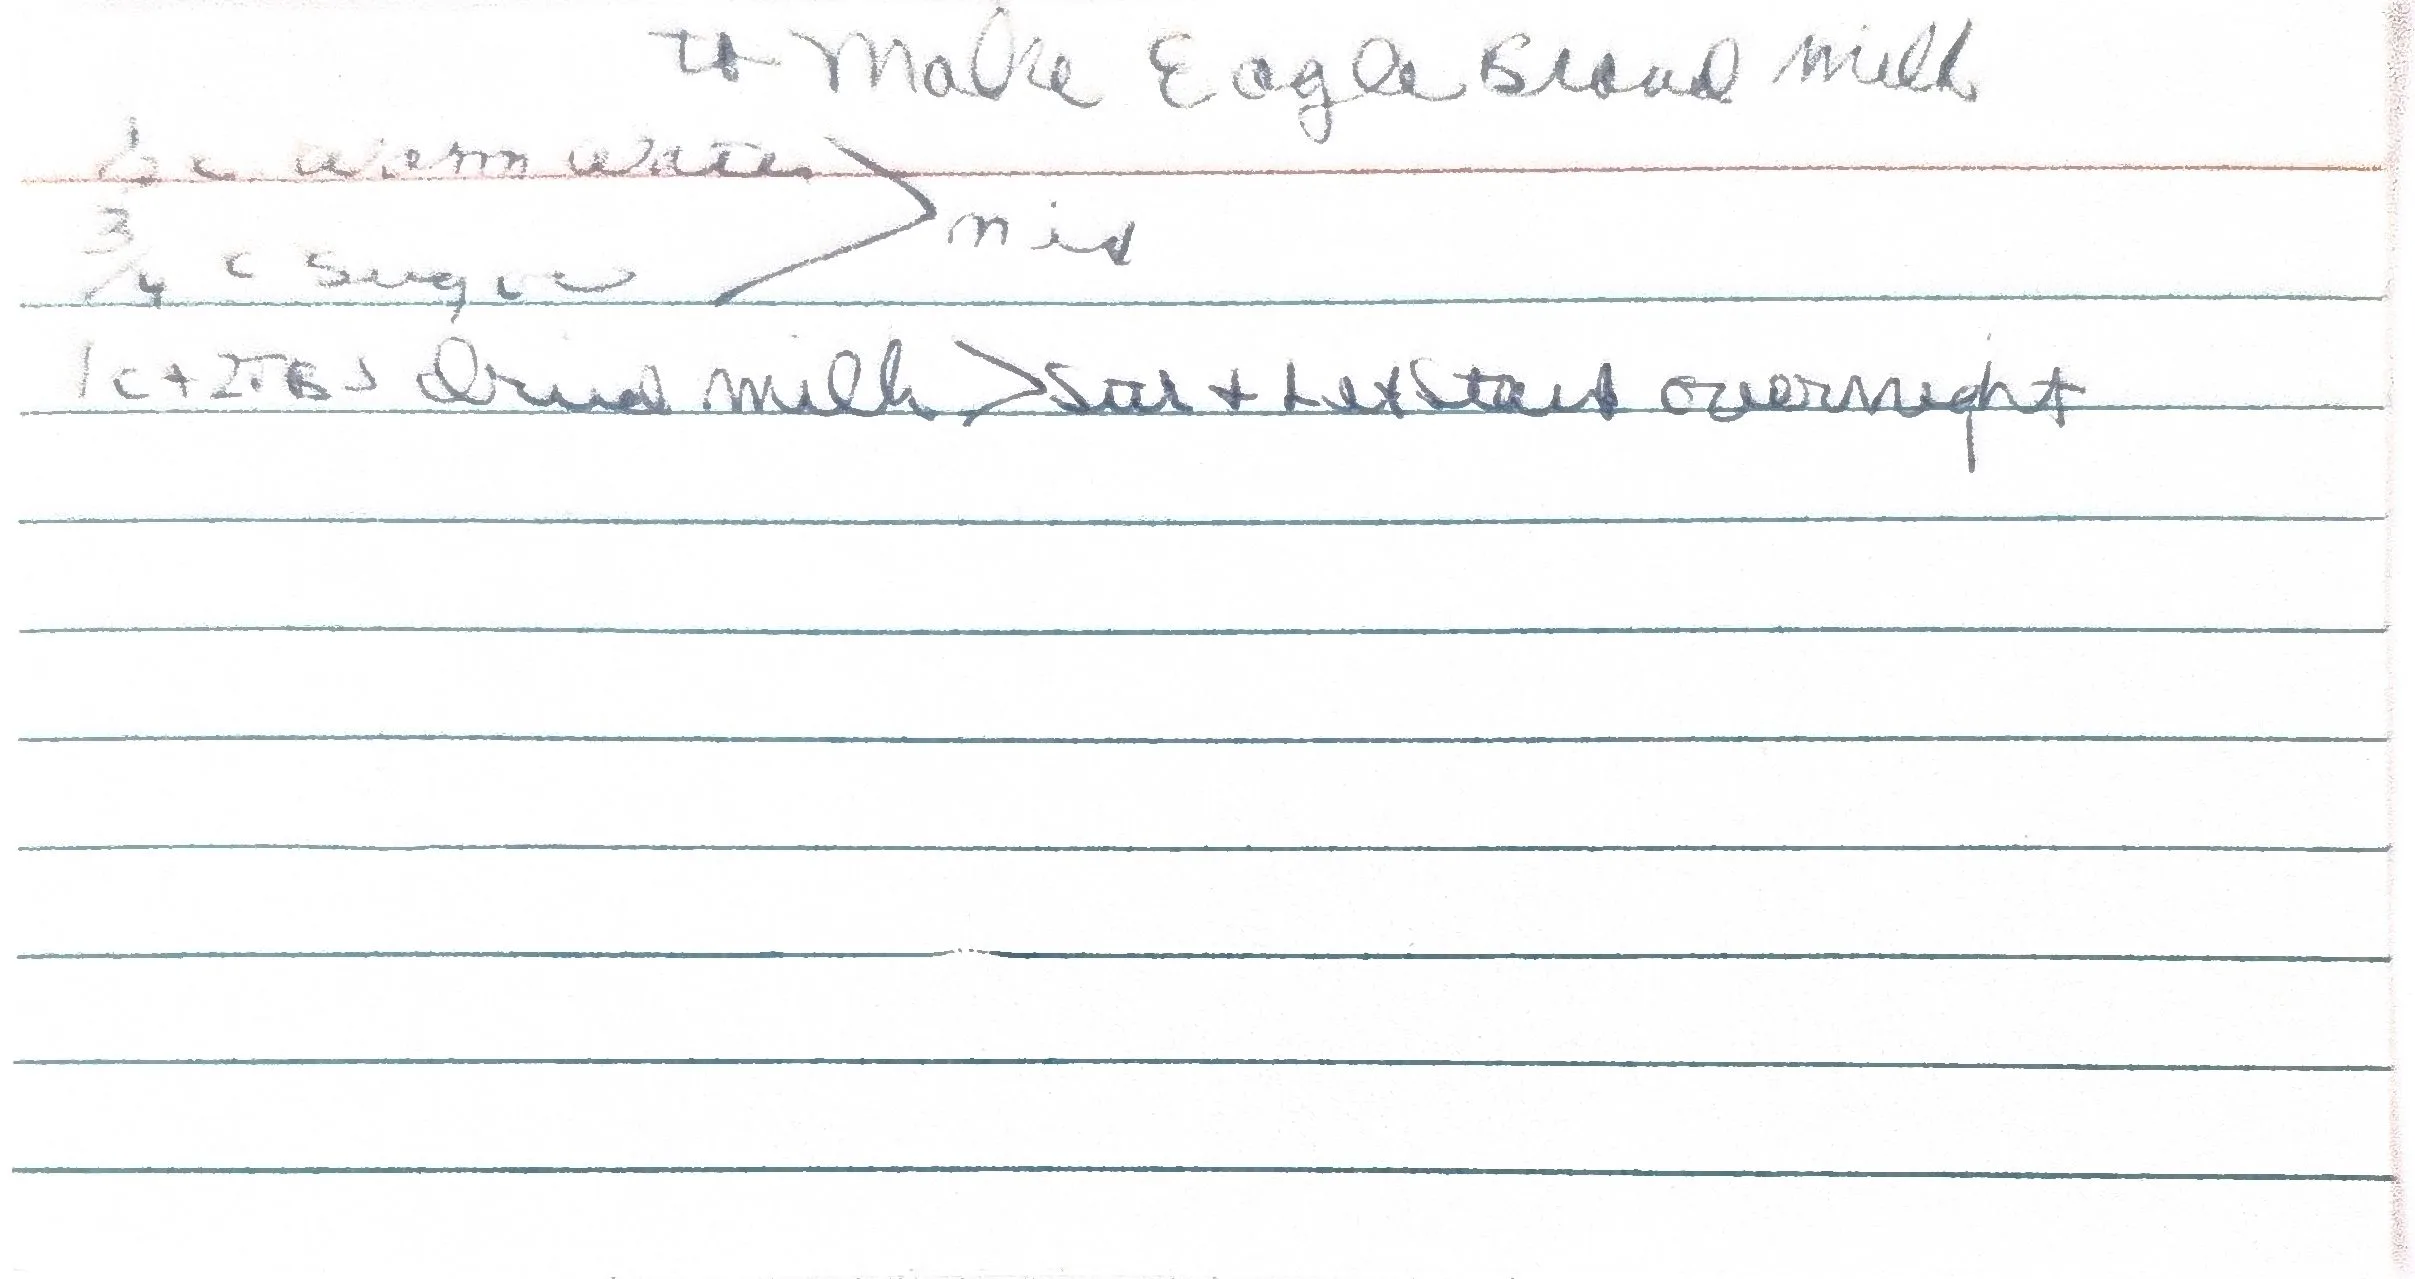 to Make Eagle Brand Milk
½ c warm water
¾ c Sugar > mix
1 c + 2 TBS dried milk > Stir + Let Stand overnight